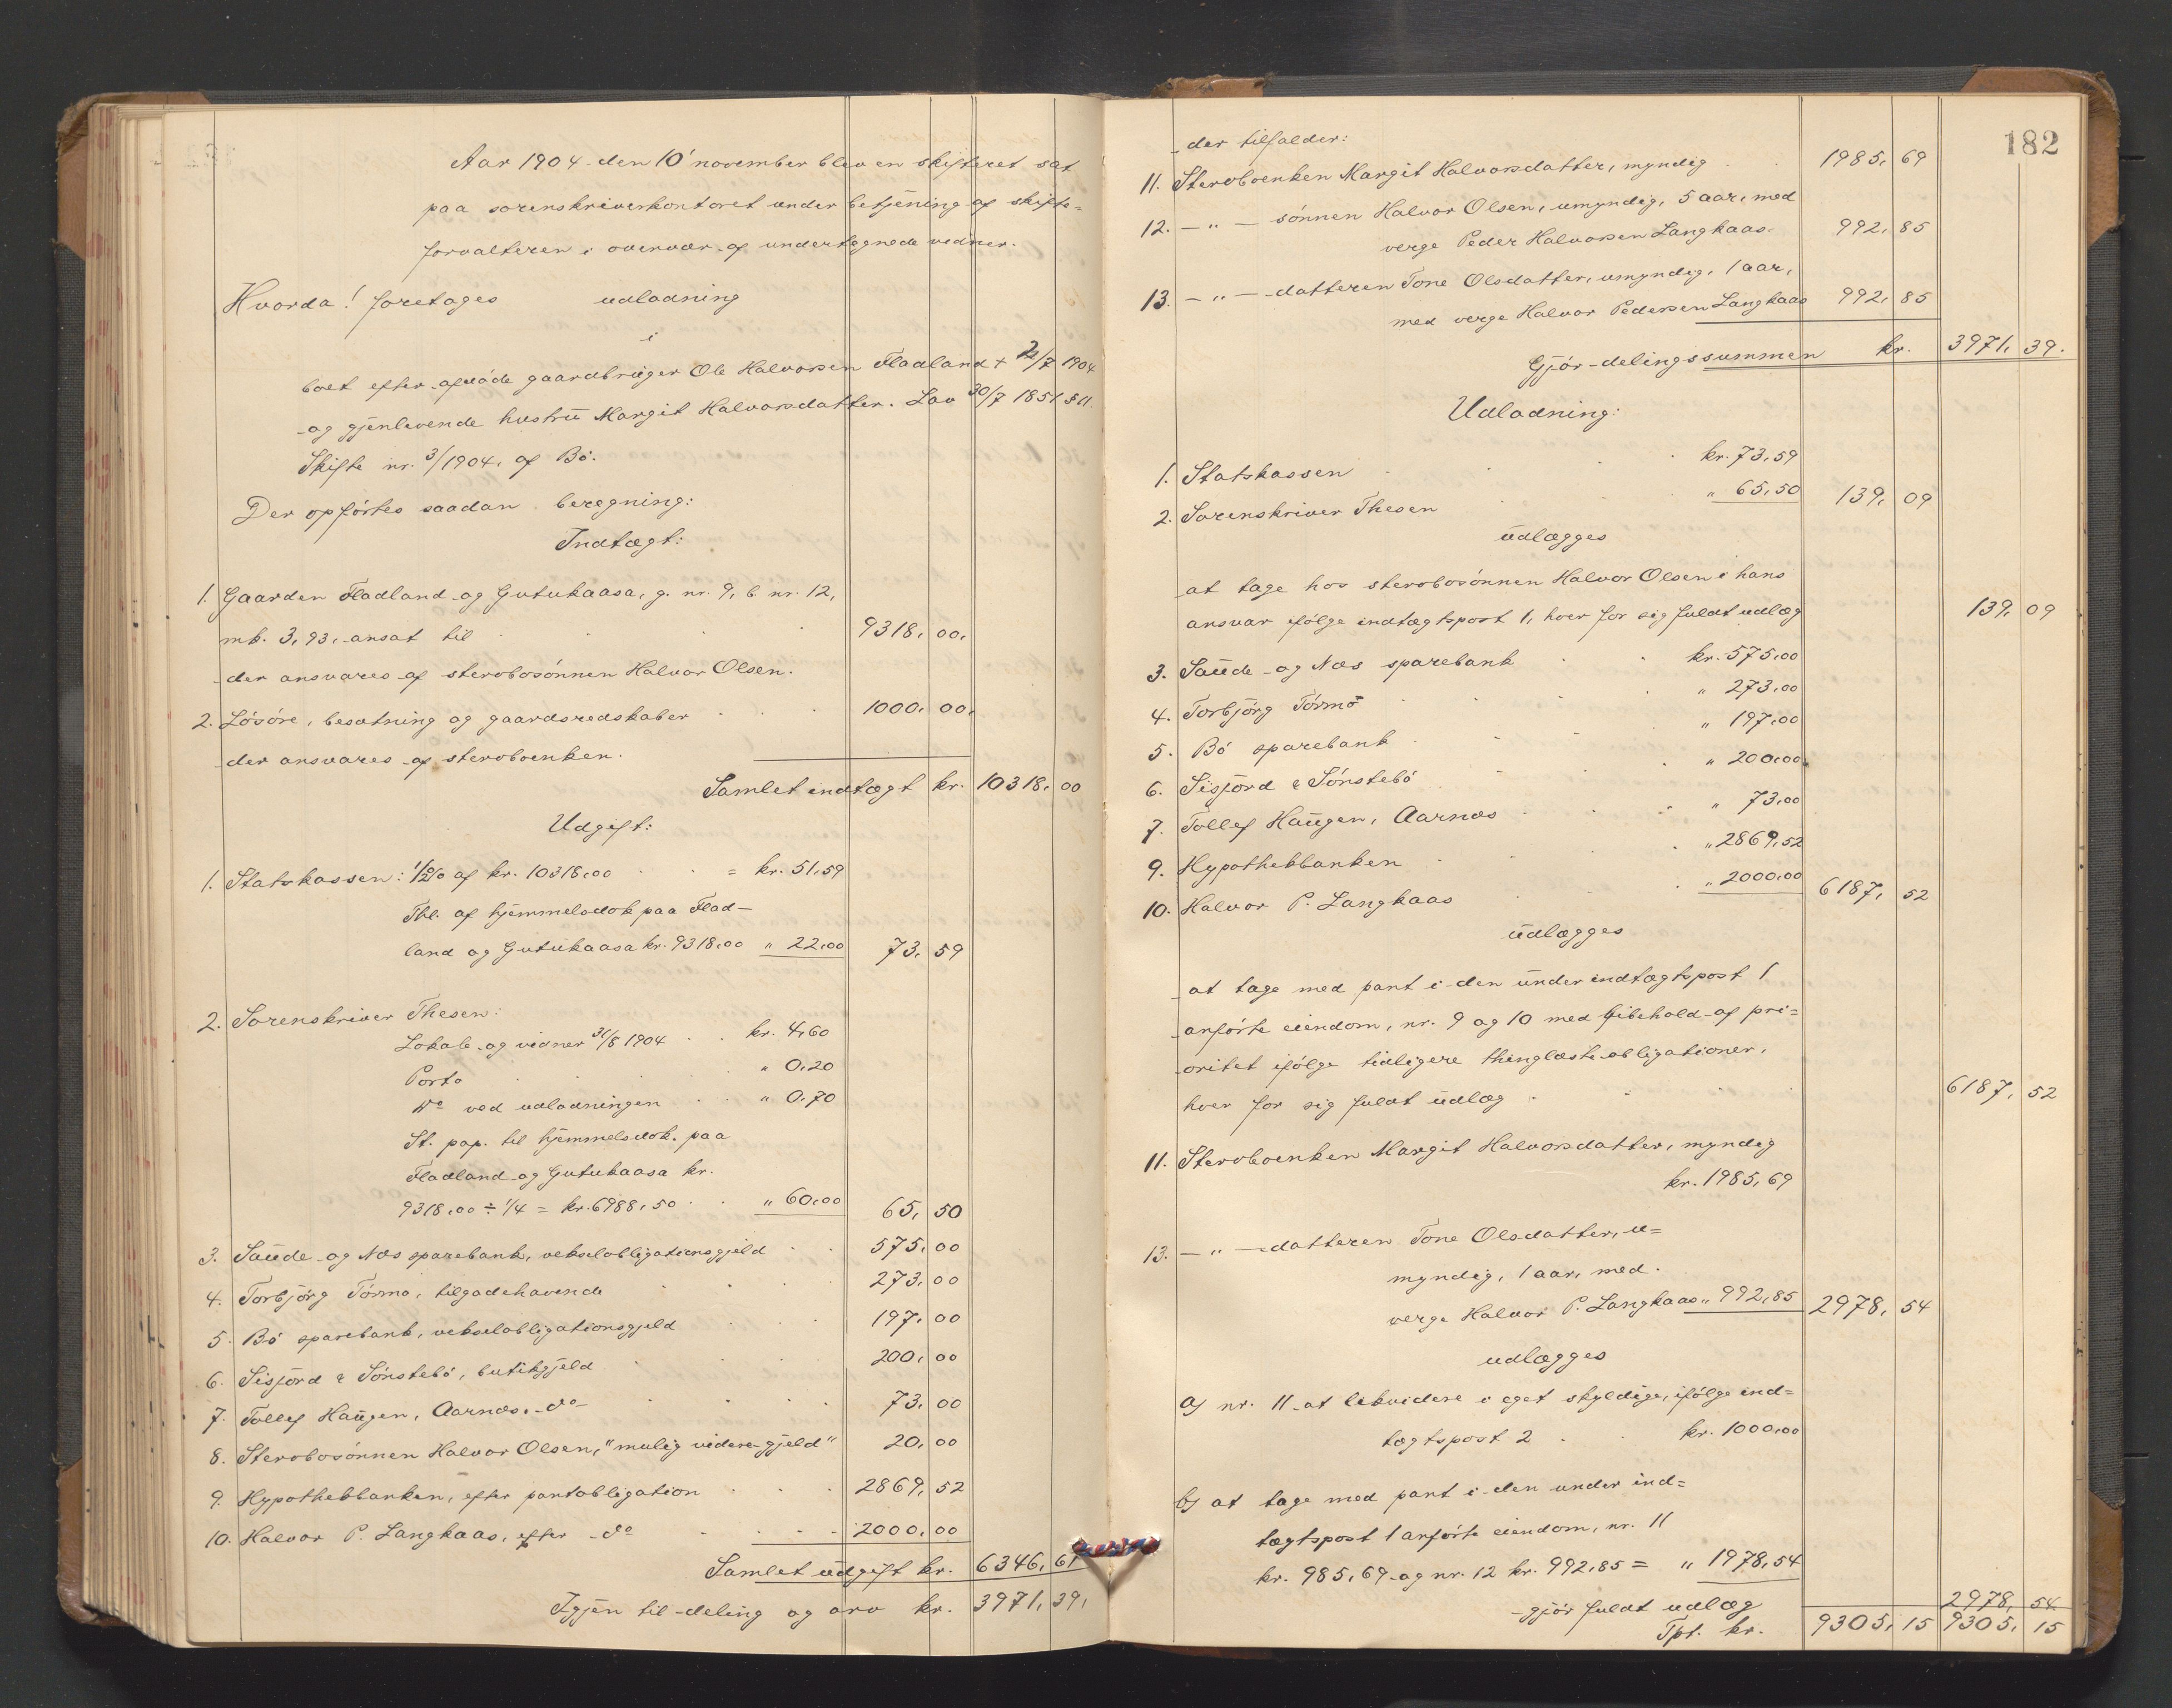 Aar 1904 den 10' november blev en skifteret sat
paa sorenskriverkontoret under betjening af skifte=
forvalteren i overvær af undertegnede vidner.
Hvorda! foretages udlodning
i
boet efter afdöde gaardbruger Ole Halvorsen Fladland + 2/7 1904
og gjenlevende hustru Margit Halvorsdatter. Lov 30/7 1851 § 11.
Skifte nr. 3/1904, af Bö.
Der opförtes saadan beregning:
Indtægt:
1. Gaarden Fladland og Gutukaasa, g. nr. 9, b. nr. 12,
mk. 3,93, ansat til 9318,00,
der ansvares af stervbosönnen Halvor Olsen.
2. Lösöre, besætning og gaardsredskaber 1000,00,
der ansvares af stervboenken.
Samlet indtægt kr. 10318,00
Udgift:
1. Statskassen: 1/2% af kr. 10318,00 = kr. 51,59
Thl. af hjemmelsdok paa Flad-
land og Gutukaasa kr. 9318,00 " 22,00 73,59
2. Sorenskriver Thesen:
Lokale og vidner 31/8 1904 kr. 4,60
Porto " 0,20
Do ved udlodningen " 0,70
St. pap. til hjemmelsdok. paa
Fladland og Gutukaasa kr.
9318,00 ÷ 1/4 = kr. 6988,50 " 60,00 65,50
3. Saude og Nes sparebank, vekselobligationsgjeld 575,00
4. Torbjörg Törmo, tilgodehavende 273,00
5. Bö sparebank, vekselobligationsgjeld 197,00
6. Sisjord & Sönstebö, butikgjeld 200,00
7. Tollef Haugen, Aarnes, do 73,00
8. Stervbosönnen Halvor Olsen, "mulig videre gjeld" 20,00
9. Hypothekbanken, efter pantobligation 2869,52
10. Halvor P. Langkaas, efter do 2000,00
Samlet udgift kr. 6346,61
Igjen til deling og arv kr. 3971,39,
182
der tilfalder:
11. Stervboenken Margit Halvorsdatter, myndig 1985,69
12. — " — sönnen Halvor Olsen, umyndig, 5 aar, med
verge Peder Halvorsen Langkaas. 992,85
13. — " — datteren Tone Olsdatter, umyndig, 1 aar,
med verge Halvor Pedersen Langkaas 992,85
Gjör delingssummen kr. 3971,39.
Udlodning:
1. Statskassen kr. 73,59
2. Sorenskriver Thesen " 65,50 139,09
udlægges
at tage hos stervbosönnen Halvor Olsen i hans
ansvar ifölge indtægtspost 1, hver for sig fuldt udlæg 139,09
3. Saude og Nes sparebank kr. 575,00
4. Torbjörg Törmo " 273,00
5. Bö sparebank " 197,00
6. Sisjord & Sönstebö " 200,00
7. Tollef Haugen, Aarnes " 73,00
9. Hypothekbanken " 2869,52
10. Halvor P. Langkaas " 2000,00 6187,52
udlægges
at tage med pant i den under indtægtspost 1
anförte eiendom, nr. 9 og 10 med bibehold af pri=
oritet ifölge tidligere thinglæste obligationer,
hver for sig fuldt udlæg 6187,52
11. Stervboenken Margit Halvorsdatter, myndig
kr. 1985,69
13. — " — datteren Tone Olsdatter, u=
myndig, 1 aar, med
verge Halvor P. Langkaas " 992,85 2978,54
udlægges
a) nr. 11 at likvidere i eget skyldige, ifölge ind=
tægtspost 2 kr. 1000,00
b) at tage med pant i den under ind=
tægtspost 1 anförte eiendom, nr. 11
kr. 985,69 og nr. 12 kr. 992,85 = " 1978,54
gjör fuldt udlæg 2978,54
Tpt. kr. 9305,15 9305,15